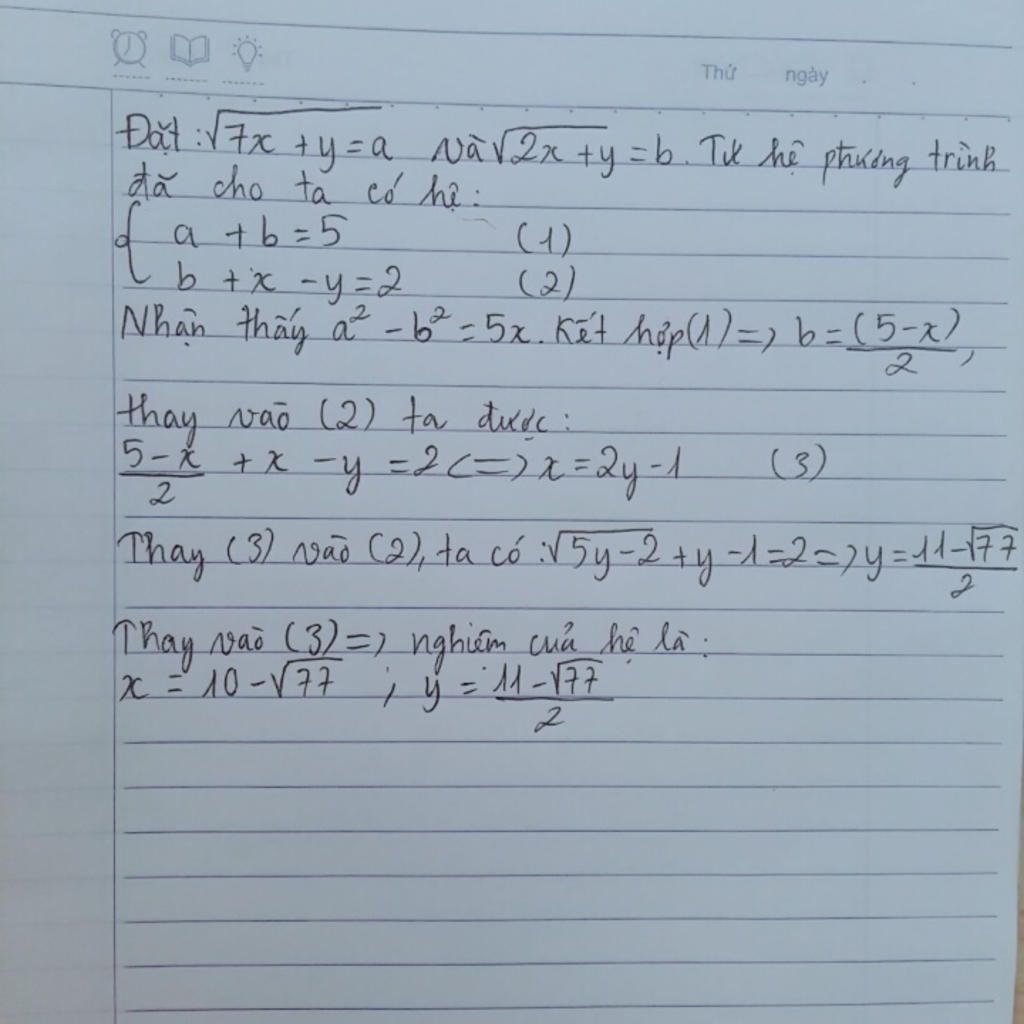 Thứ ngày
Đặt : √(7x + y) = a và √(2x + y) = b. Từ hệ phương trình
đã cho ta có hệ :
{ a + b = 5 (1)
b + x - y = 2 (2)
Nhận thấy a² - b² = 5x. Kết hợp (1) => b = (5 - x)/2,
thay vào (2) ta được :
(5 - x)/2 + x - y = 2 <=> x = 2y - 1 (3)
Thay (3) vào (2), ta có : √(5y - 2) + y - 1 = 2 => y = (11 - √77)/2
Thay vào (3) => nghiệm của hệ là :
x = 10 - √77 ; y = (11 - √77)/2